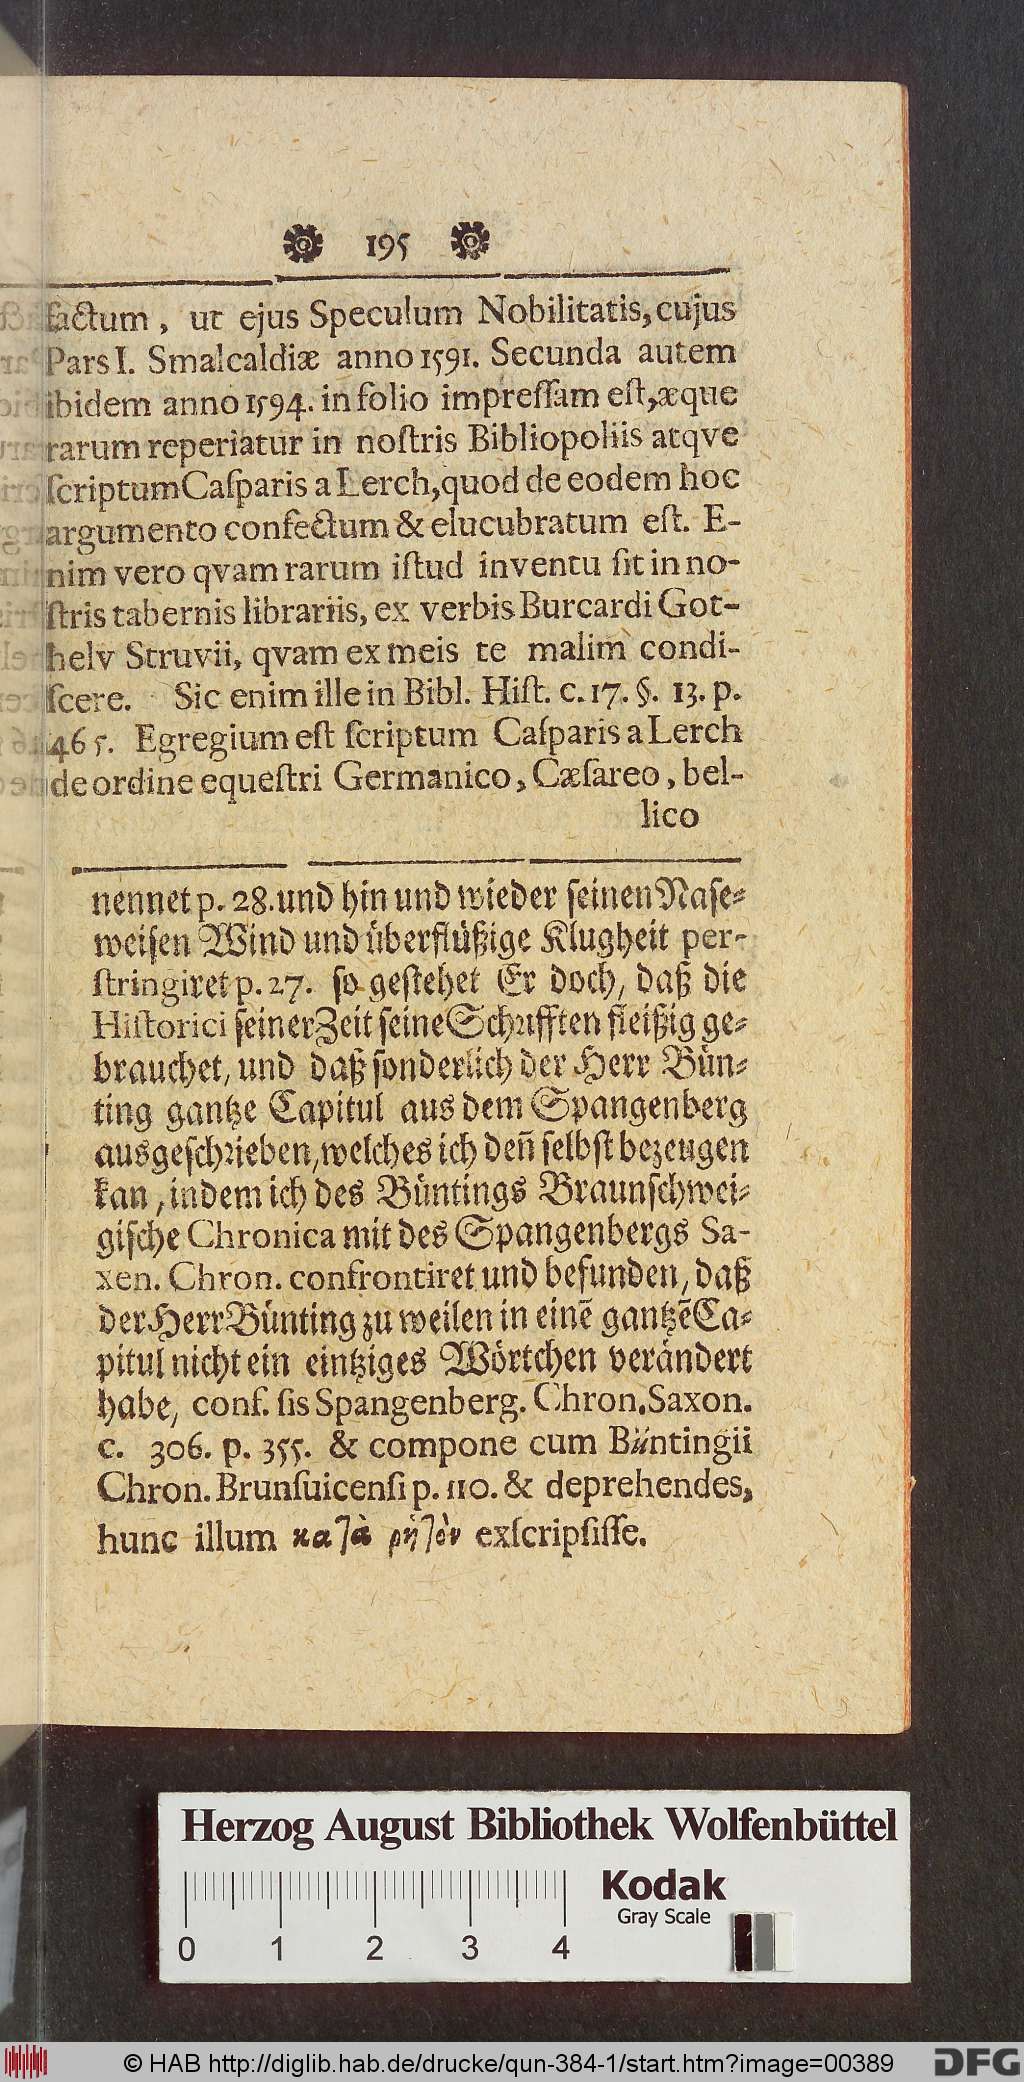 195
factum, ut ejus Speculum Nobilitatis, cujus
Pars I. Smalcaldiæ anno 1591. Secunda autem
ibidem anno 1594. in folio impreſſam eſt, æque
rarum reperiatur in noſtris Bibliopoliis atqve
ſcriptum Caſparis a Lerch, quod de eodem hoc
argumento confectum & elucubratum eſt. E-
nim vero qvam rarum iſtud inventu ſit in no-
ſtris tabernis librariis, ex verbis Burcardi Got-
helv Struvii, qvam ex meis te malim condi-
ſcere. Sic enim ille in Bibl. Hiſt. c. 17. §. 13. p.
465. Egregium eſt ſcriptum Caſparis a Lerch
de ordine equeſtri Germanico, Cæſareo, bel-
lico
nennet p. 28. und hin und wieder ſeinen Naſe-
weiſen Wind und überflüßige Klugheit per-
ſtringiret p. 27. ſo geſtehet Er doch, daß die
Hiſtorici ſeiner Zeit ſeine Schrifften fleißig ge-
brauchet, und daß ſonderlich der Herr Bün-
ting gantze Capitul aus dem Spangenberg
ausgeſchrieben, welches ich deñ ſelbſt bezeugen
kan, indem ich des Büntings Braunſchwei-
giſche Chronica mit des Spangenbergs Sa-
xen. Chron. confrontiret und befunden, daß
der Herr Bünting zu weilen in einē gantzē Ca-
pitul nicht ein eintziges Wörtchen verändert
habe, conf. ſis Spangenberg. Chron. Saxon.
c. 306. p. 355. & compone cum Büntingii
Chron. Brunſuicenſi p. 110. & deprehendes,
hunc illum καλὰ ῥηλὸν exſcripſiſſe.
Herzog August Bibliothek Wolfenbüttel
Kodak
Gray Scale
0 1 2 3 4
© HAB http://diglib.hab.de/drucke/qun-384-1/start.htm?image=00389
DFG